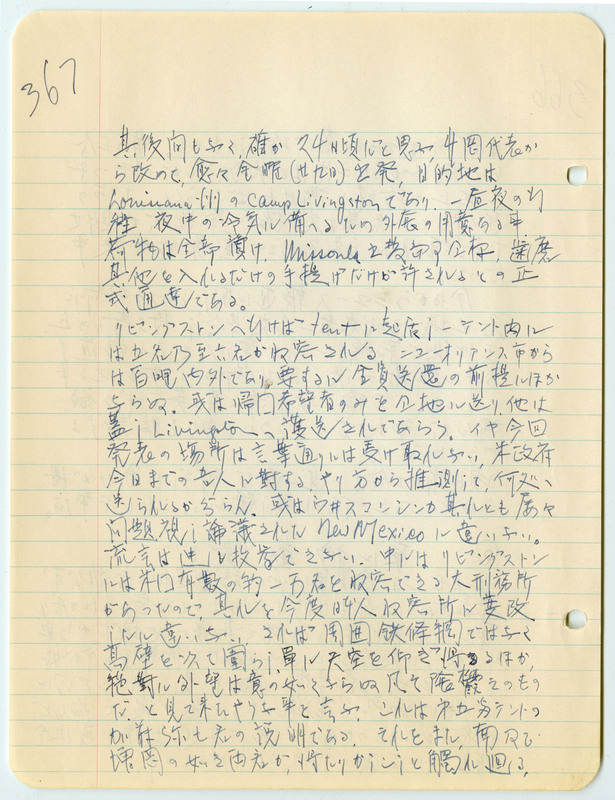 367
其後間もなく、確か 24日頃だと思ふ、4団代表か
ら改めて、愈々金曜(廿九日)出発、目的地は
Louisiana州のCamp Livingstonであり、一昼夜の行
程 夜中の冷気に備へるため外套の用意ある事
荷物は全部預け、Missoula 歯磨
其他を入れるだけの手提げだけが許されるとの正
式通達である。
リビングストンへ行けばtentに起居し一テント内に
は五名乃至六名が収容される ニューオリアンス市から
は百哩内外であり、要するに全員送還の前提にほか
ならぬ。或は帰国希望者のみを 地に送り、他は
蓋しLivingstonへ護送されるであらう。イヤ今回
発表の場所は言葉通りには受け取れない、米政府
今日までの吾人に対するやり方から推測して、何処へ
送られるか分らん。或はウヰスコンシンか其れとも屡々
問題視し論議されたNew Mexicoに違いない。
流言は 枚挙できない、中にはリビングストン
には米国有数の約一万名を収容できる大刑務所
があったので、其れを今度日本人収容所に変改
したに違いない、されば周囲鉄条網ではなく
高壁を以て囲らし、単に天空を仰ぎ得るほか、
絶対に外望は意の如くならぬ 陰鬱そのもの
だ と見て来たやうな事を言ふ、これは第五号テントの
 弥七君の説明である。それをまた、
 の如き両君が、得たりかしこしと触れ廻る、